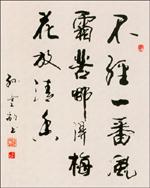 不經一番風
霜苦哪得梅
花放清香